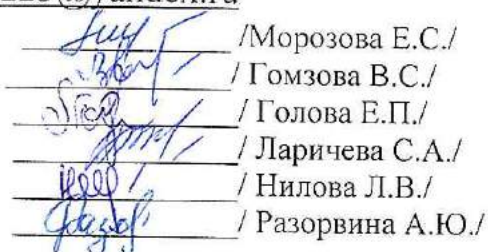 /Морозова Е.С./
/ Гомзова В.С./
/ Голова Е.П./
/ Ларичева С.А./
/ Нилова Л.В./
/ Разорвина А.Ю./